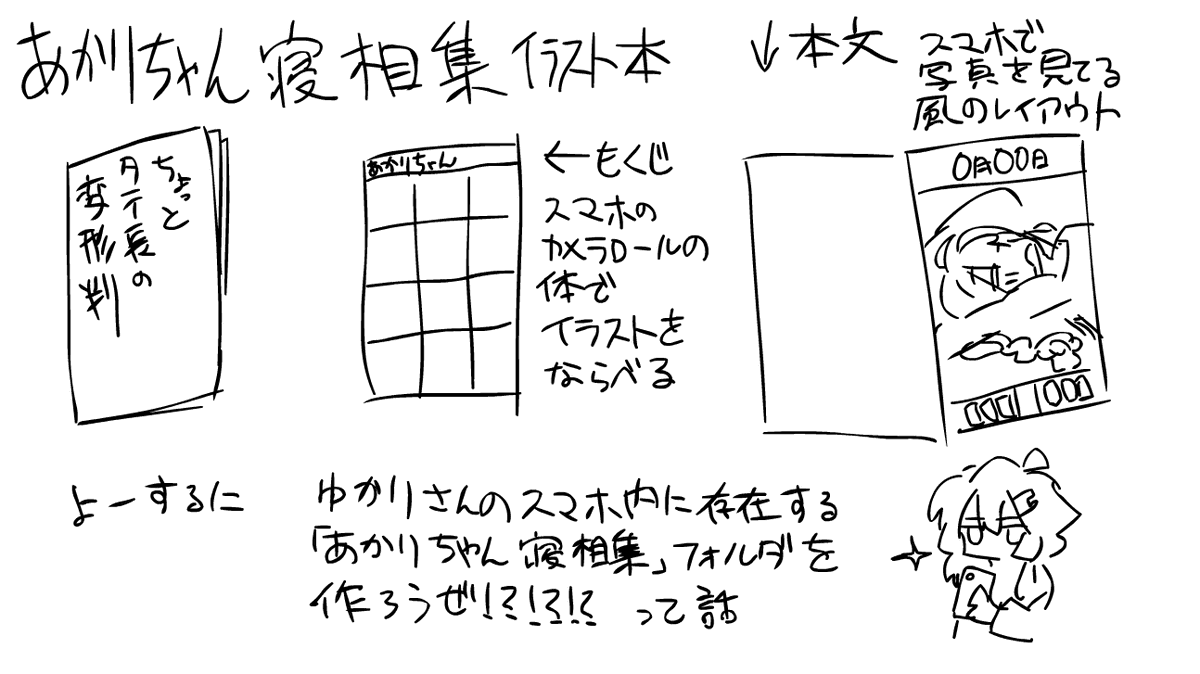 あかりちゃん寝相集イラスト本
ちょっと
タテ長の
変形判
あかりちゃん
←もくじ
スマホの
カメラロールの
体で
イラストを
ならべる
↓本文
スマホで
写真を見てる
風のレイアウト
0月00日
よーするに
ゆかりさんのスマホ内に存在する
「あかりちゃん寝相集」フォルダを
作ろうぜ!?!?!? って話